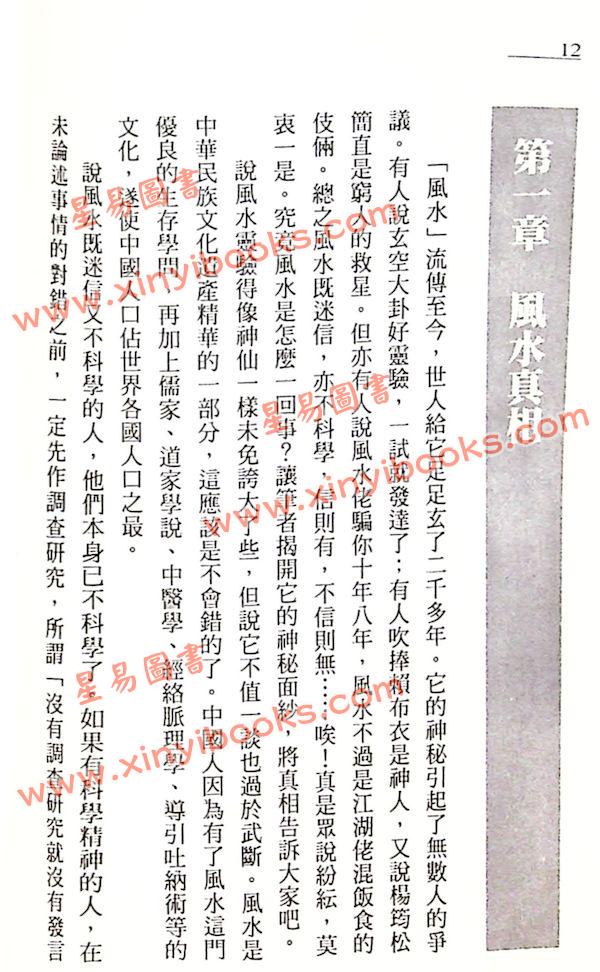 12
第一章　風水真相
「風水」流傳至今，世人給它足足玄了二千多年。它的神秘引起了無數人的爭
議。有人說玄空大卦好靈驗，一試就發達了；有人吹捧賴布衣是神人，又說楊筠松
簡直是窮人的救星。但亦有人說風水佬騙你十年八年，風水不過是江湖佬混飯食的
伎倆。總之風水既迷信，亦不科學，信則有，不信則無……唉！真是眾說紛紜，莫
衷一是。究竟風水是怎麼一回事？讓筆者揭開它的神秘面紗，將真相告訴大家吧。
說風水靈驗得像神仙一樣未免誇大了些，但說它不值一談也過於武斷。風水是
中華民族文化遺產精華的一部分，這應該是不會錯的了。中國人因為有了風水這門
優良的生存學問，再加上儒家、道家學說、中醫學、經絡脈理學、導引吐納術等的
文化，遂使中國人口佔世界各國人口之最。
說風水既迷信又不科學的人，他們本身已不科學了。如果有科學精神的人，在
未論述事情的對錯之前，一定先作調查研究，所謂「沒有調查研究就沒有發言
星易圖書
www.xinyibooks.com
星易圖書
www.xinyibooks.com
星易圖書
www.xinyibooks.com